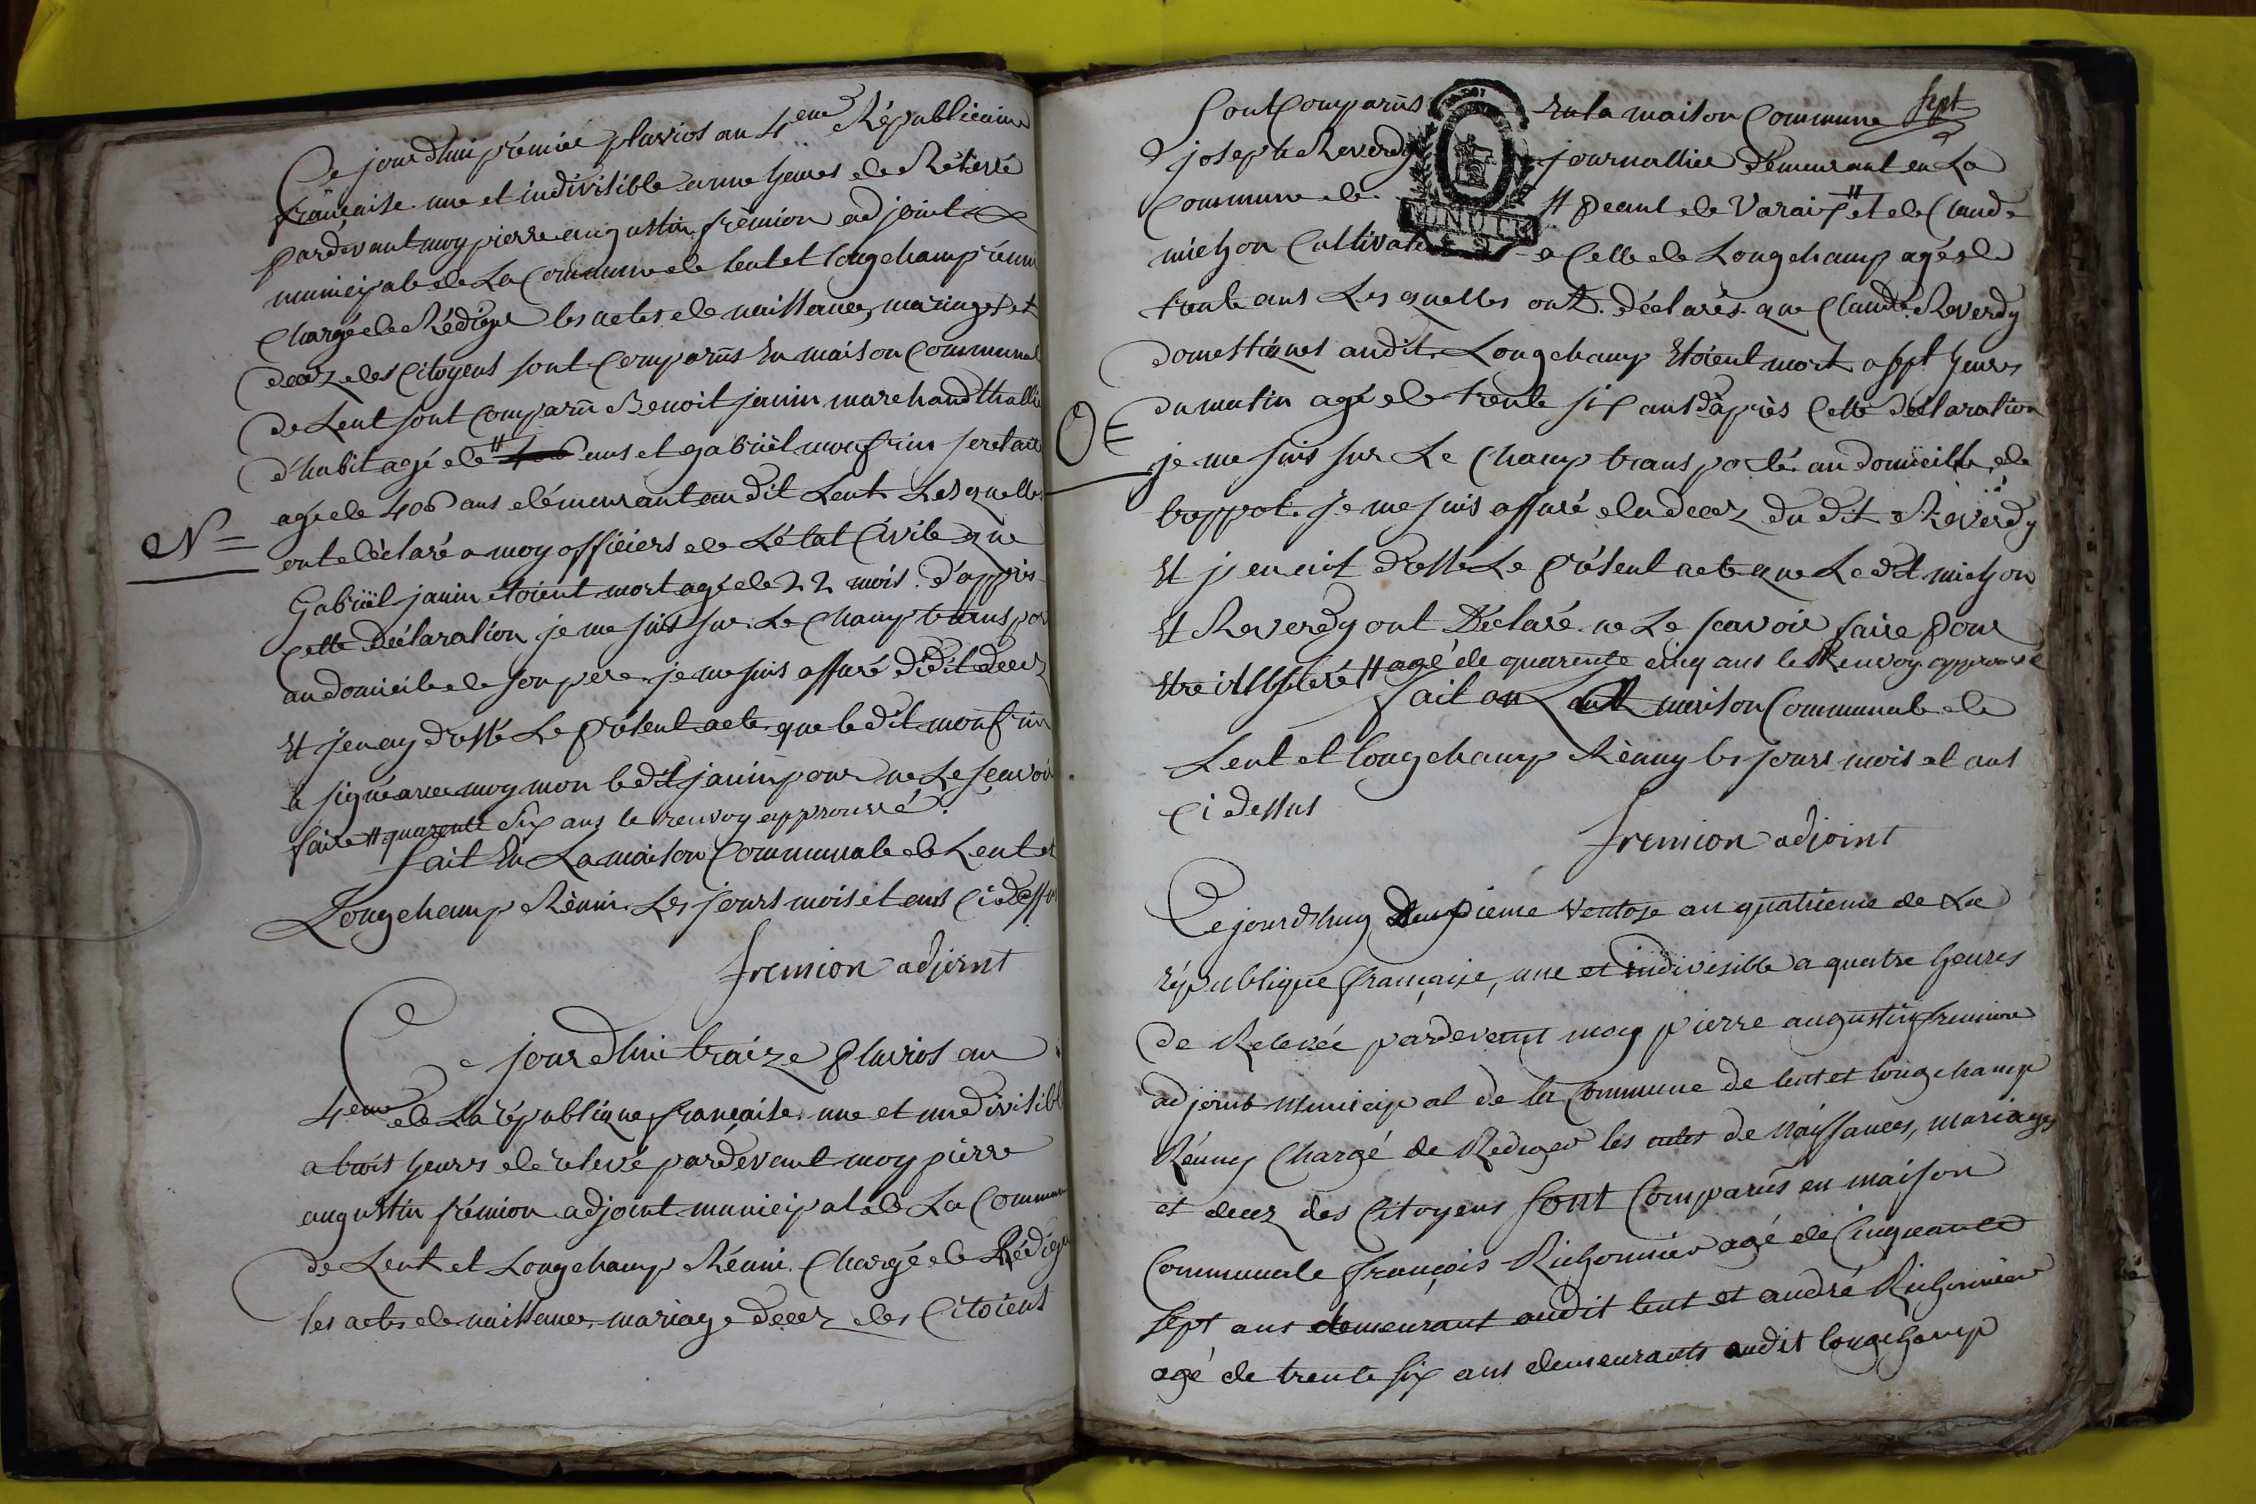 Ce jour d'hui prémiér pluvios an 4eme Républicaine
française une et indivisible a une heures de Réléve
pardevant moy pierre augustin fremion adjoint
municipale de La Commune de lent et longchamp réuni
Chargé de Rédigér les actes de naissance, mariages et
decez des Citoyens sont Comparus En maison Communal
de Lent sont Comparu Benoit janin marchand thallie
d'habit agé de # ans et gabriël monfrin scretaire
agé de 40 6 ans démeurant au dit Lent Lesquelles
N=
ont déclaré a moy officiers de L'état Civile que
Gabriël janin étoient mort agé de 22 mois. d'appris
Cette Déclaration je me suis sur Le Champ transpor
au domicile de son pere je me suis assuré du dit decez
Et j'en ay dressé Le présent acte que le dit monfrin
a signé avec moy mon le dit janin pour ne Le scavoir
faire # quarente six ans le renvoy approuvé.
fait En La maison Communale de Lent et
Longchamp Réuni Les jours mois et ans Ci dessus
fremion adjoint
Ce jour d'hui traize pluvios an
4eme de La république française une et indivisible
a trois heures de relevé pardevant moy pierre
augustin frémion adjoint municipal de La Commune
de Lent et Longchamp Réuni Chargé de Rédigér
les actes de naissance mariage decez des Citoiens
sept
sont Comparus En la maison Commune
joseph Reverdy journallier demeurant en La
Commune de # peant de Varai # et de Claude
michon Cultivate Celle de Longchamp agés de
trente ans Lesquelles ont déclarés que Claude Reverdy
domestiques audit Longchamp Etoient mort a sept heures
du matin agé de trente six ans d'après Cette déclaration
je me suis sur Le Champ transporté au domicille de
trappot. je me suis assuré du decez du dit Reverdy
Et j'en ait dressé Le présent acte que Le dit michon
Et Reverdy ont Déclaré ne Le scavoir faire pour
Etre illiteré # agé de quarente cinq ans le Renvoy approuvé
fait au Lent maison Communale de
Lent et longchamp Réuny les jours mois et ans
Ci dessus
fremion adjoint
Ce jourd'huy Deuxieme ventose an quatrieme de La
république française, une et indivisible a quatre heures
de Relevée pardevant moy pierre augustin fremion
adjoint municipal de la Commune de lent et longchamp
Réuny Chargé de Rediger les actes de Naissances, mariages
et decez des Citoyens sont Comparus en maison
Communale françois Richonnier agé de Cinquante
sept ans demeurant audit lent et andré Richonnier
agé de trente six ans demeurants audit longchamp